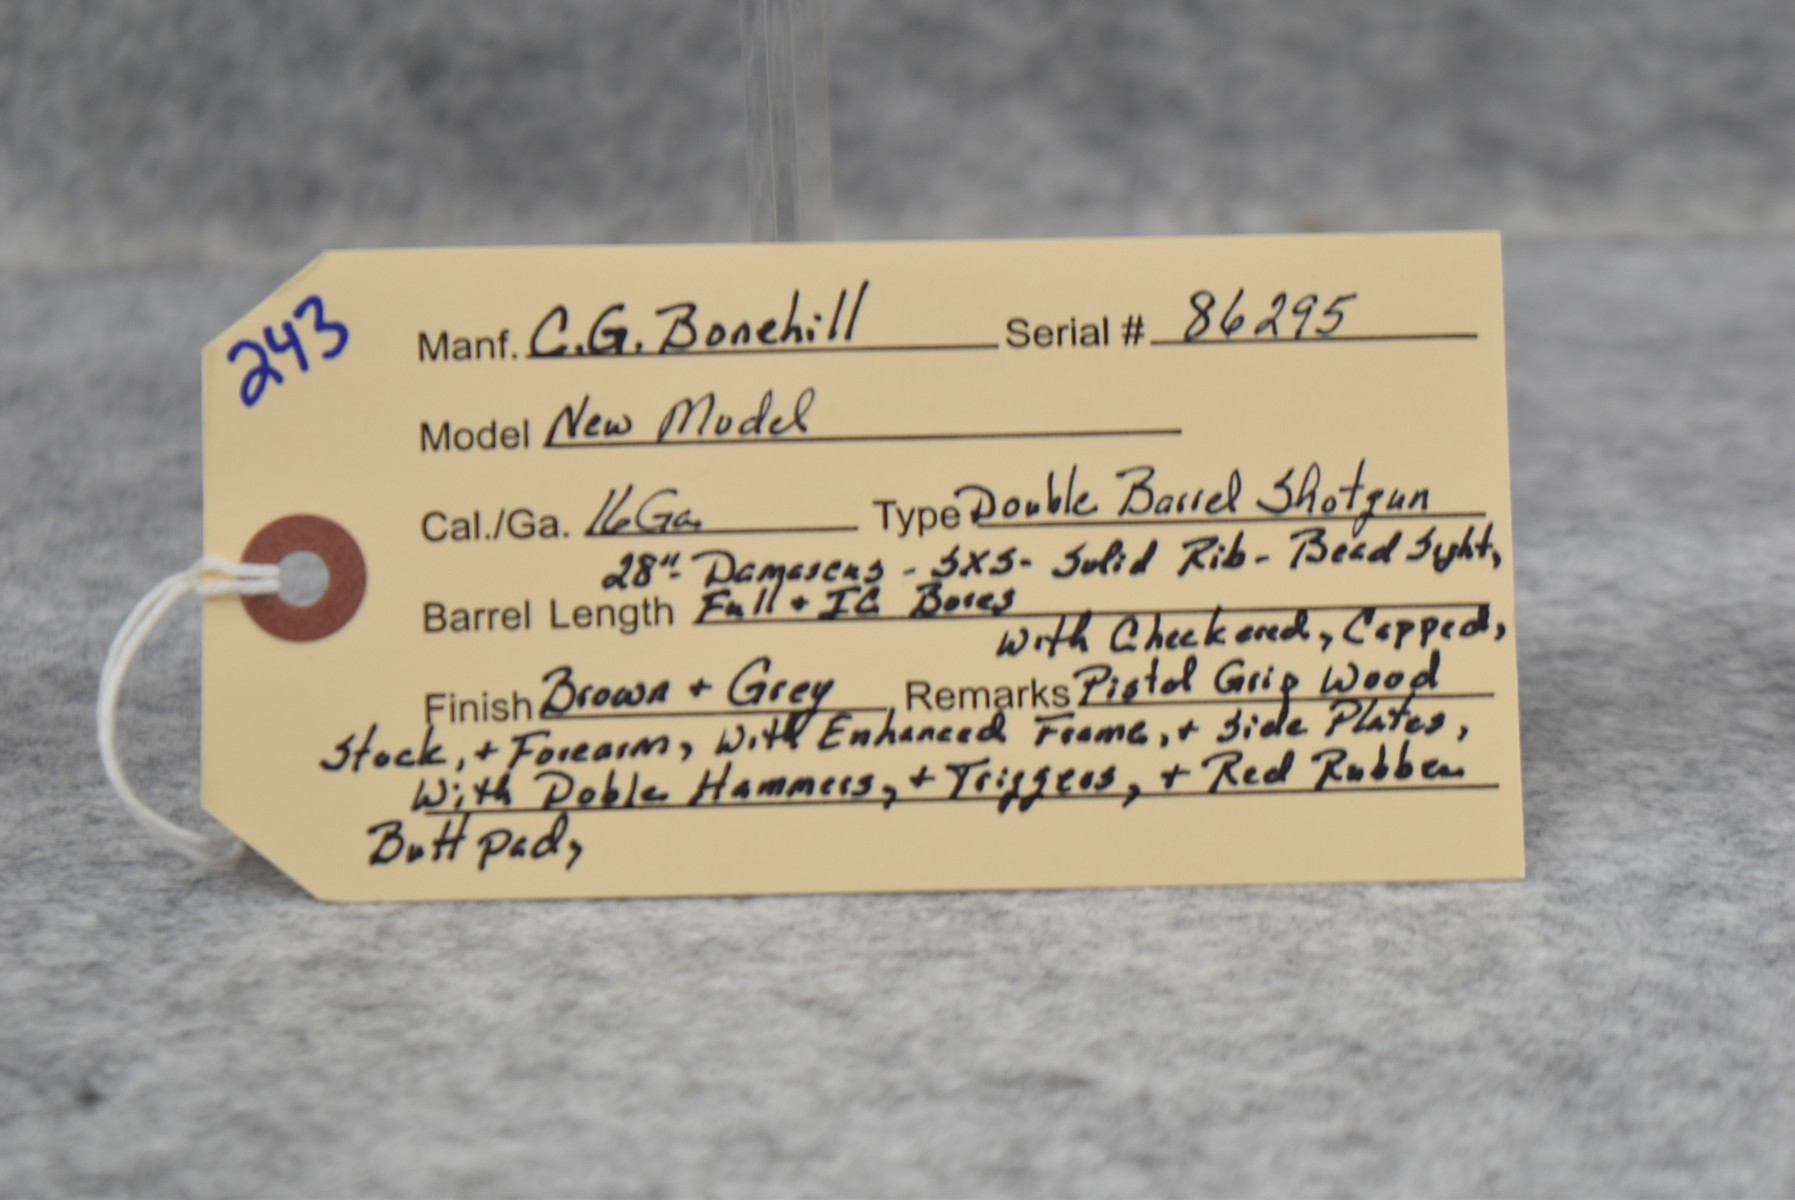 243
Manf. C.G. Bonehill Serial # 86295
Model New Model
Cal./Ga. 16 Ga. Type Double Barrel Shotgun
28"- Damascus - SXS- Solid Rib- Bead Sight,
Barrel Length Full + IC Bores
with Checkered, Capped,
Finish Brown + Grey, Remarks Pistol Grip Wood
Stock, + Forearm, With Enhanced Frame, + Side Plates,
With Doble Hammers, + Triggers, + Red Rubber
Butt pad,